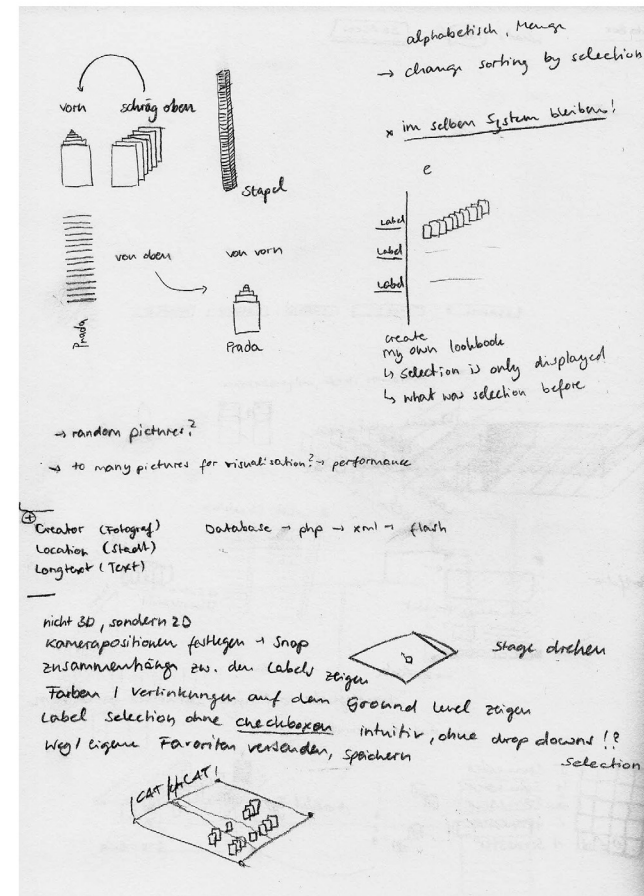 alphabetisch, Menge
→ change sorting by selection
x im selben System bleiben!
vorn
schräg oben
Stapel
e
Label
Label
Label
von oben
von vorn
Prada
Prada
create
my own lookbook
↳ selection is only displayed
↳ what was selection before
→ random pictures?
→ to many pictures for visualisation? → performance
+
Creator (Fotograf)
Location (Stadt)
Longtext (Text)
Database → php → xml → flash
nicht 3D, sondern 2D
Kamerapositionen festlegen → Snap
zusammenhänge zw. den Labels zeigen
Stage drehen
Farben / Verlinkungen auf dem Ground level zeigen
Label Selection ohne checkboxen intuitiv, ohne drop downs !?
Weg / eigene Favoriten versenden, speichern
selection
CAT
CAT